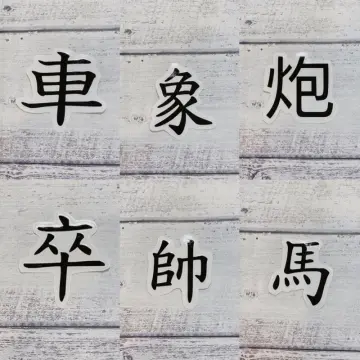 車 象 炮
卒 帥 馬